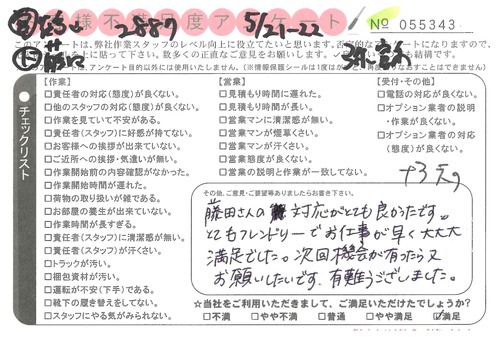 様不 度アンケート
2887 5/21-22 No 055343
このアンケートは、弊社作業スタッフのレベル向上に役立てたいと思います。
チェックリスト
【作業】
□責任者の対応(態度)が良くない。
□他のスタッフの対応(態度)が良くない。
□作業を見ていて不安がある。
□責任者(スタッフ)に好感が持てない。
□お客様への挨拶が出来ていない。
□ご近所への挨拶・気遣いが無い。
□作業開始前の内容確認がなかった。
□作業開始時間が遅れた。
□荷物の取り扱いが雑である。
□お部屋の養生が出来ていない。
□作業時間が長すぎる。
□責任者(スタッフ)に清潔感が無い。
□責任者(スタッフ)が汗くさい。
□トラックが汚い。
□梱包資材が汚い。
□運転が不安(下手)である。
□靴下の履き替えをしてない。
□スタッフにやる気がみられない。
【営業】
□見積もり時間に遅れた。
□見積もり時間が長い。
□営業マンに清潔感が無い。
□営業マンが煙草くさい。
□営業マンが汗くさい。
□営業態度が良くない。
□営業の説明と作業が一致してない。
【受付・その他】
□電話の対応が良くない。
□オプション業者の説明
・作業が良くない。
□オプション業者の対応
(態度)が良くない。
その他、ご意見・ご要望等ありましたらお書き下さい。
藤田さんの 対応がとても良かったです。
とてもフレンドリーでお仕事が早く大大大
満足でした。次回機会が有ったら又
お願いしたいです。有難うございました。
☆当社をご利用いただきまして、ご満足いただけたでしょうか?
□不満 □やや不満 □普通 □やや満足 □満足